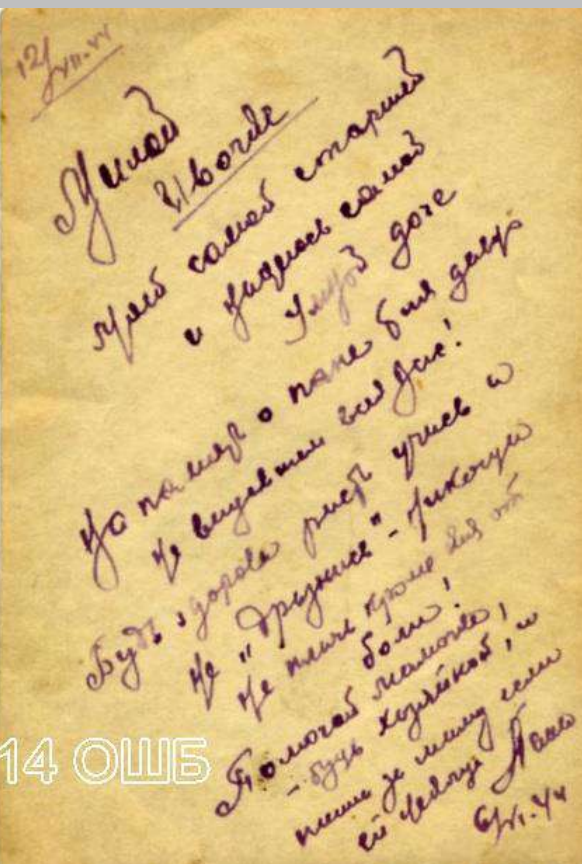 12/VII.44
Милой
Ивочке
моей самой старшей
и надеюсь самой
умной доче
На память о папе
не видевшем
Будь здорова расти учись и
не "дрызнись" - никогда
не плачь кроме как от
боли!
Помогай мамочке,
- будь хозяйкой, и
пиши за маму если
ей некогда Папа
14 ОШБ